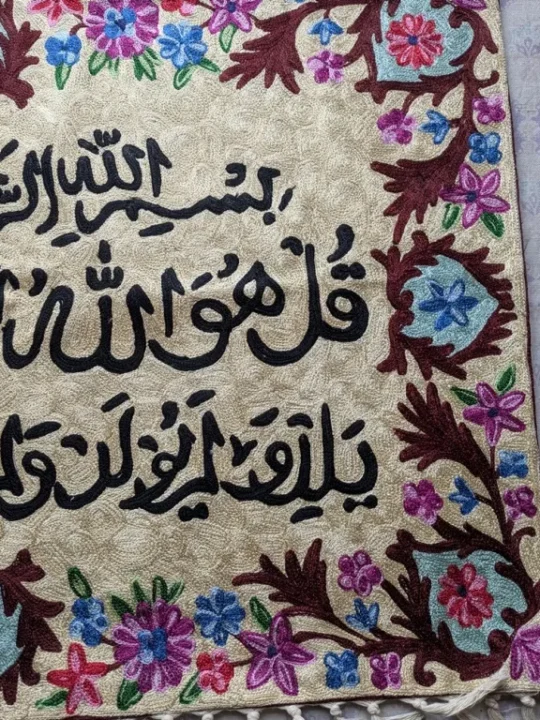 بسم الله
قُلْ هُوَ اللّٰهُ
يَلِدْ وَلَمْ يُولَدْ وَلَ